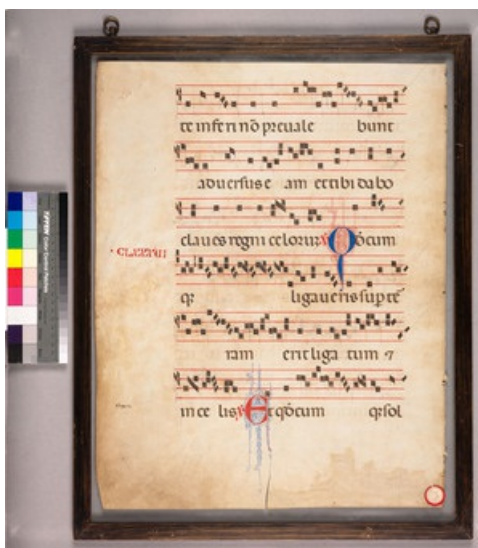 te inferi nō prevale bunt
adversus e am et tibi dabo
claves regni celorum Qōcum
qȝ ligaveris sup te
ram erit liga tum ⁊
in ce lis Et qōcum qȝ sol